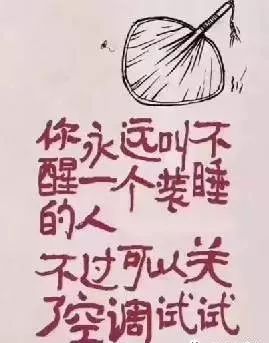 你永远叫不
醒一个装睡
的人
不过可以关
了空调试试